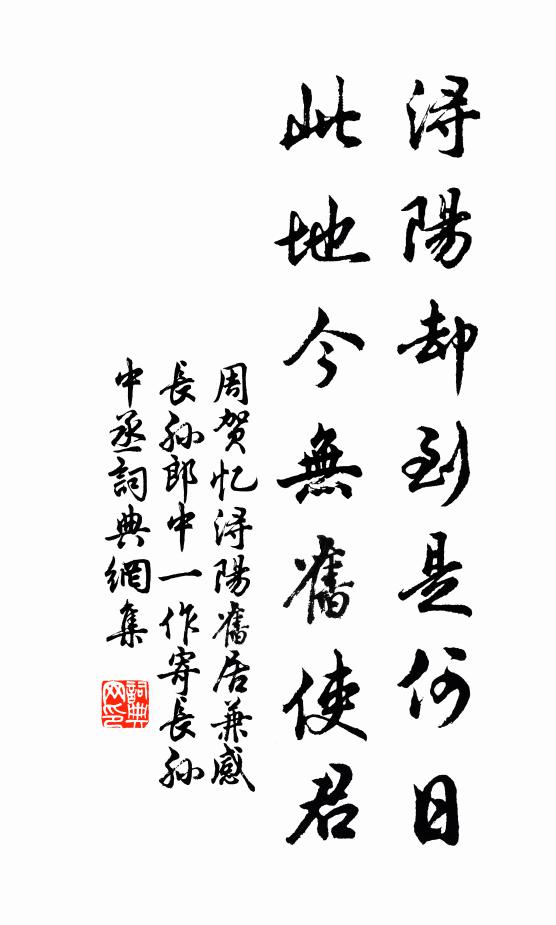 浔陽却到是何日
此地今無舊使君
周贺忆浔陽舊居兼感
長孙郎中一作寄長孙
中丞詞典網集
詞典
网印